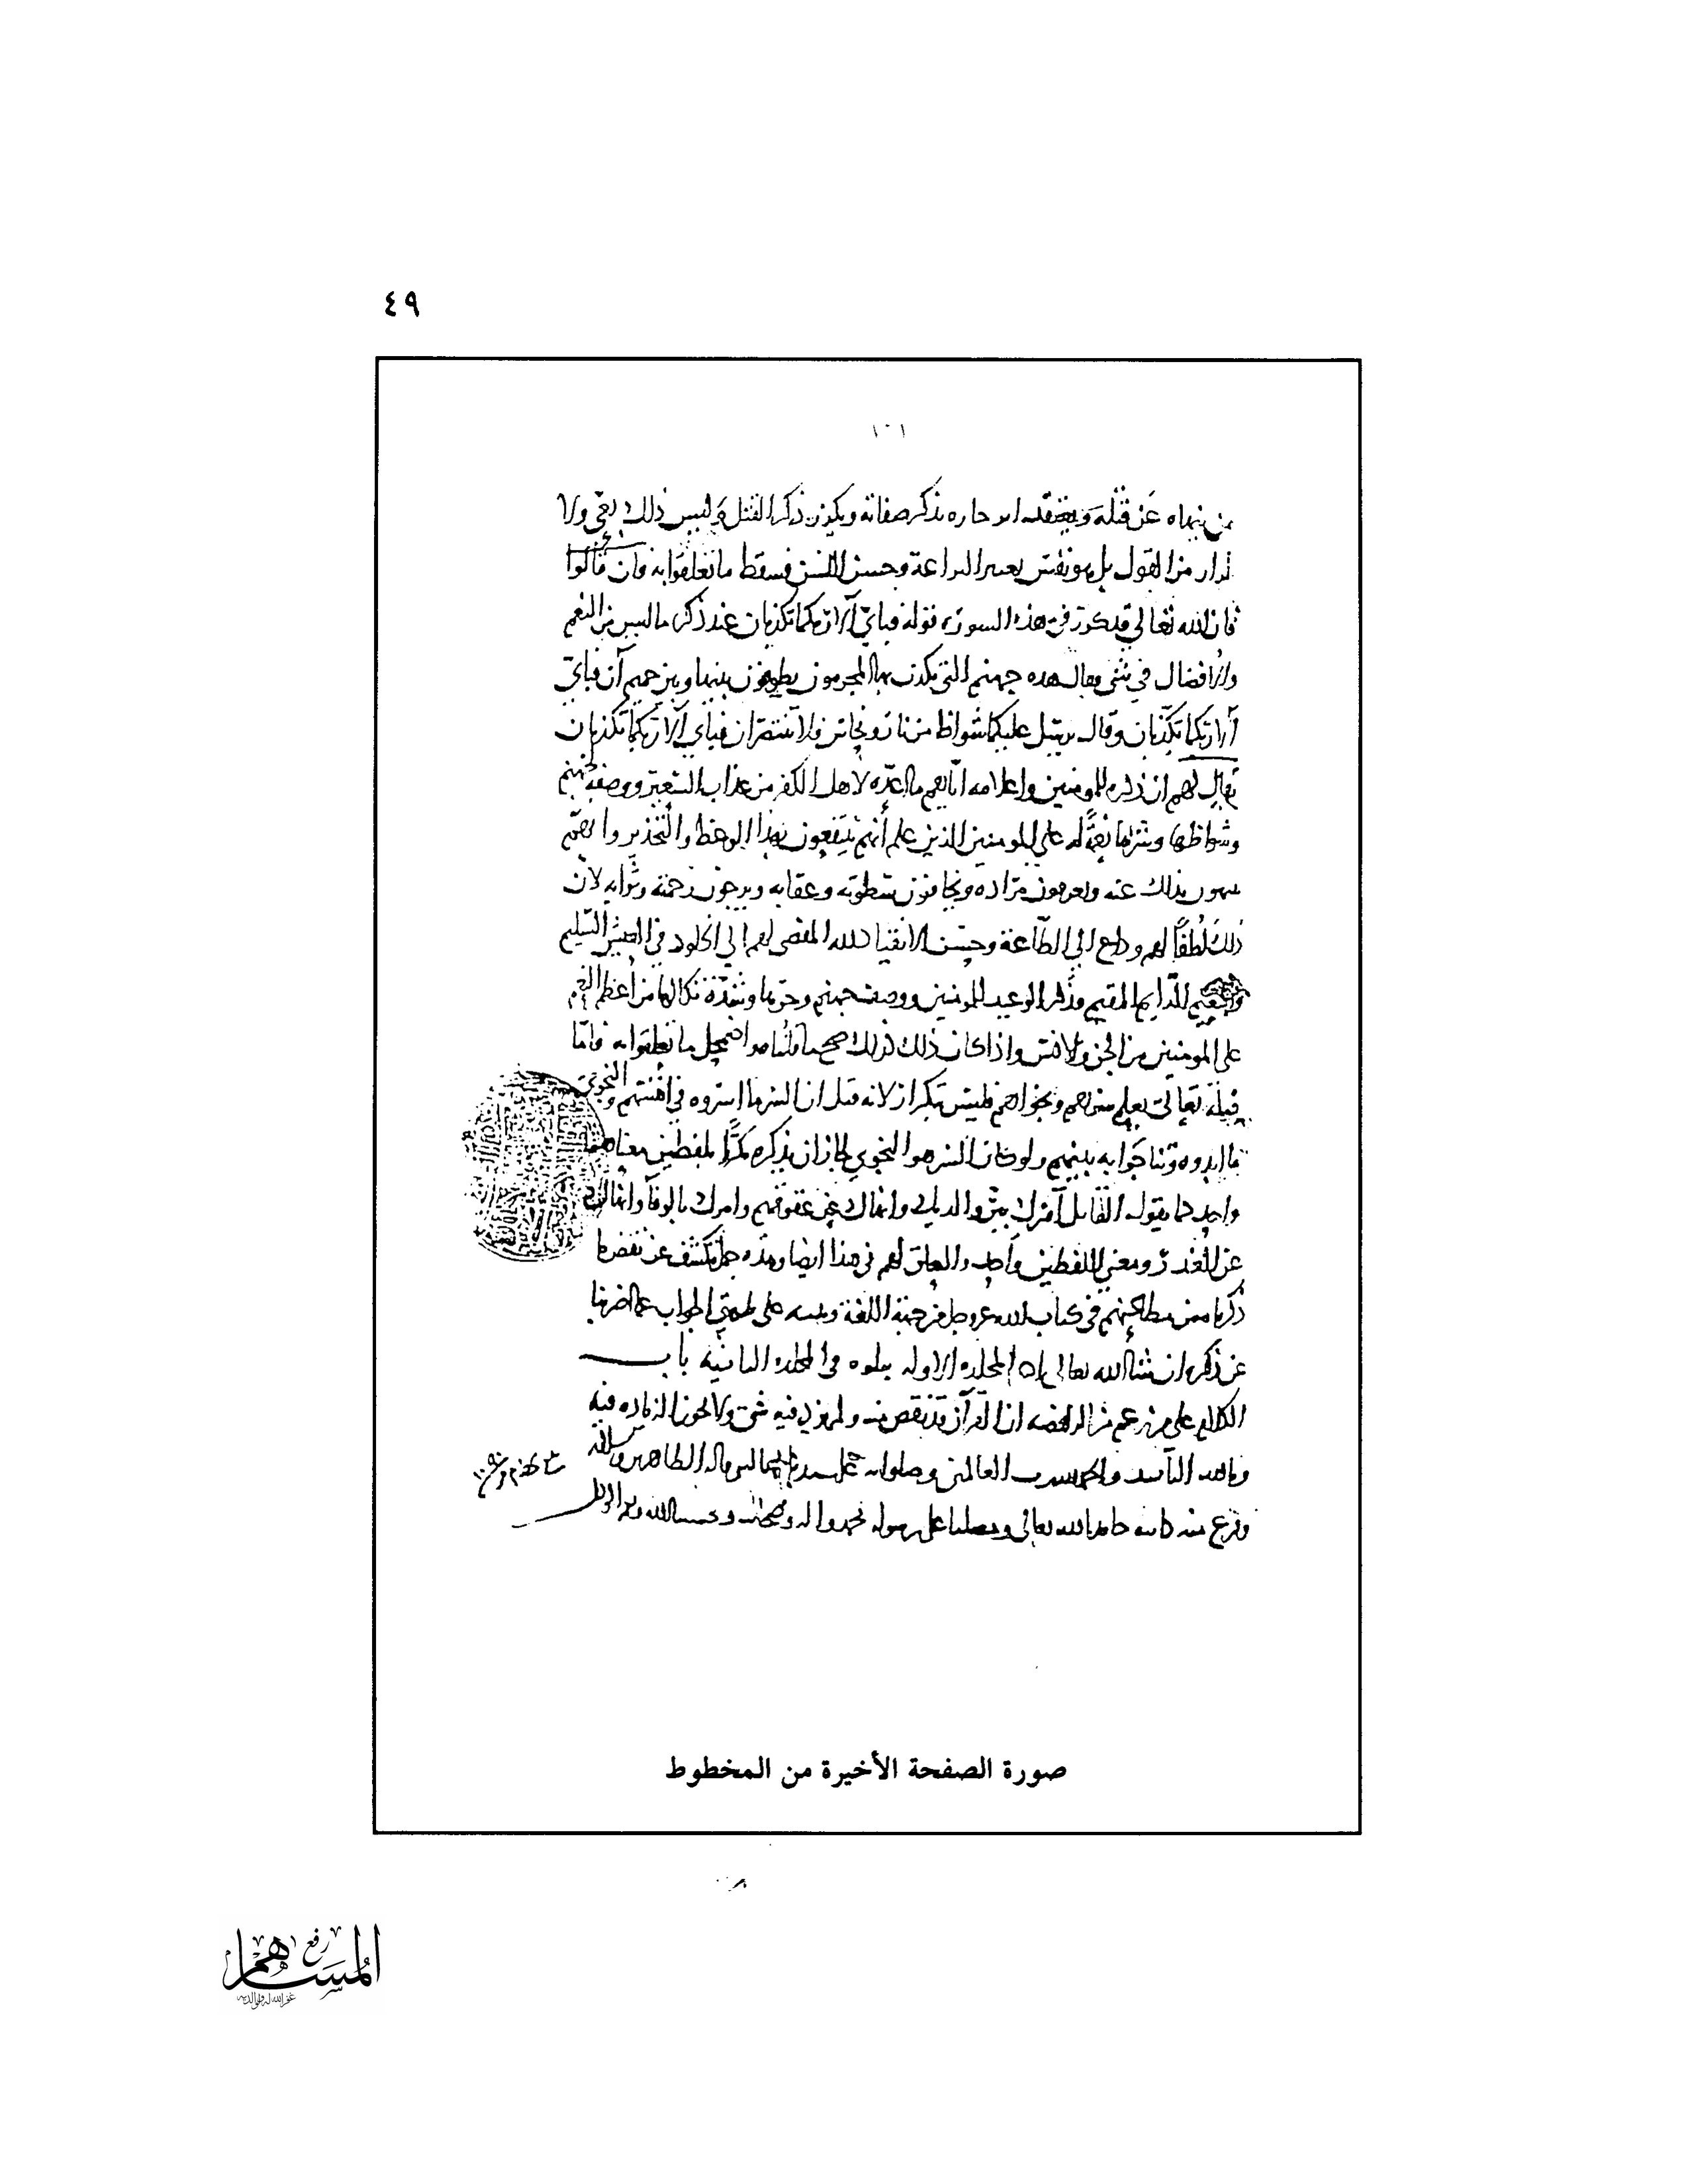 ٤٩
١٠١
عن قتله ويكون ذكر القتل وليس ذلك بعي ولا
من القول بل هو نفس البراعة وحسن اللسن فسقط ما تعلقوا به فان قالوا
فان الله تعالى قد كرر في هذه السورة قوله فباي آلا ربكما تكذبان عند ذكره ما ليس من النعم
والافضال في شي فقال هذه جهنم التي يكذب بها المجرمون يطوفون بينها وبين حميم آن فباي
آلا ربكما تكذبان وقال يرسل عليكما شواظ من نار ونحاس فلا تنتصران فباي آلا ربكما تكذبان
يقال لهم ان ذكره للمومنين واعلامه اياهم ما اعده لاهل الكفر من عذاب السعير ووصفه جهنم
وشواظها وشررها نعمة له على المومنين الذين علم أنهم ينتفعون بهذا الوعظ والتحذير
بذلك عنه ويعرفون مراده ويخافون سطوته وعقابه ويرجون رحمته وثوابه لان
ذلك لطفا لهم وداع الى الطاعة وحسن الانقياد لله المفضي لهم الى الخلود في العيش السليم
والنعيم الدايم المقيم وذكر الوعيد للمومنين ووصف جهنم وحرها وشدة نكالها من أعظم النعم
على المومنين من الجن والانس واذا كان ذلك كذلك صح ما قلناه واضمحل ما تعلقوا به فاما
قوله تعالى يعلم سرهم ونجواهم فليس بتكرار لانه قيل ان السر ما اسروه في انفسهم والنجوى
ما ابدوه وتناجوا به بينهم ولو كان السر هو النجوى لجاز ان يذكره مكررا بلفظين معناهما
واحد كما يقول القايل آمرك ببر والديك وانهاك عن عقوقهم وامرك بالوفا وانهاك
عن الغدر ومعنى اللفظين واحد في هذا ايضا وهذه جمل تكشف عن نقض ما
ذكرنا من مطاعنهم في كتاب الله عز وجل من جهة اللغة وتنبه على طريق الجواب عما اضربنا
عن ذكره ان شا الله تعالى المجلدة الاولى يتلوه في المجلدة الثانية باب
الكلام على من زعم من الرافضة ان القرآن قد نقص منه ولم يزد فيه شي ولا يجوز الزيادة فيه
وبالله التأييد والحمد لله رب العالمين وصلواته على سيدنا محمد النبي واله الطاهرين وسلامه
وفرغ منه كاتبه حامدا لله تعالى ومصليا على رسوله محمد واله وصحبه وحسبنا الله ونعم الوكيل
صورة الصفحة الأخيرة من المخطوط
رفع
المساهم
غفر الله له ولوالديه